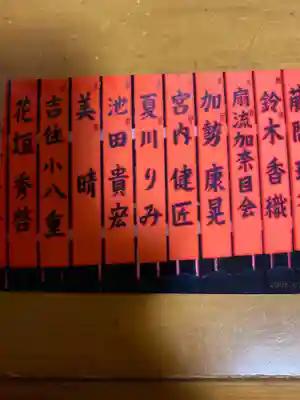 鈴木香織
扇流加奈目会
加勢康晃
宮内健匠
夏川りみ
池田貴宏
美晴
吉住小八重
花垣秀啓